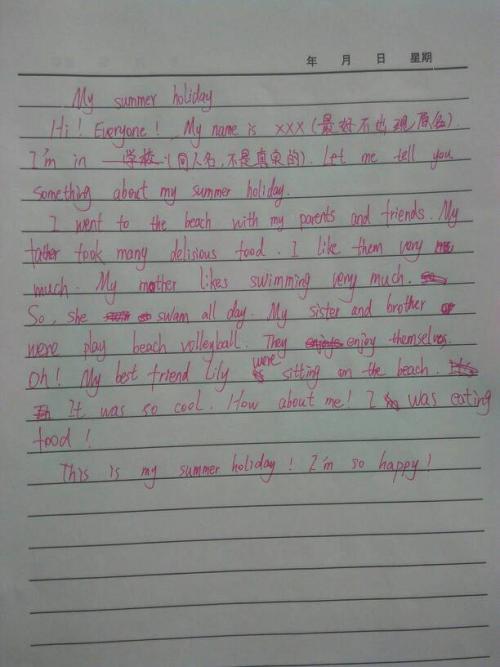 年 月 日 星期
My summer holiday
Hi! Everyone! My name is xxx (最好不出现原名).
I'm in — 学校 (同人名,不是真实的). Let me tell you
something about my summer holiday.
I went to the beach with my parents and friends. My
father took many delisious food. I like them very
much. My mother likes swimming very much.
So, she swam all day. My sister and brother
were play beach volleyball. They enjoy themselves.
Oh! My best friend Lily were sitting on the beach.
It was so cool. How about me! I was eating
food!
This is my summer holiday! I'm so happy!